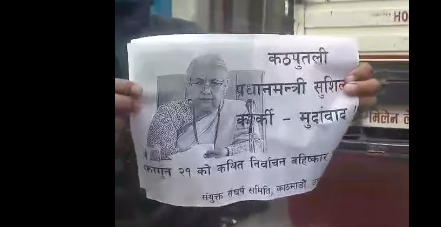 HO
कठपुतली
प्रधानमन्त्री सुशिल
कार्की - मुर्दावाद
मिलेन
फागुन २१ को कथित निर्वाचन बहिष्कार
संयुक्त संघर्ष समिति, काठमाडौं